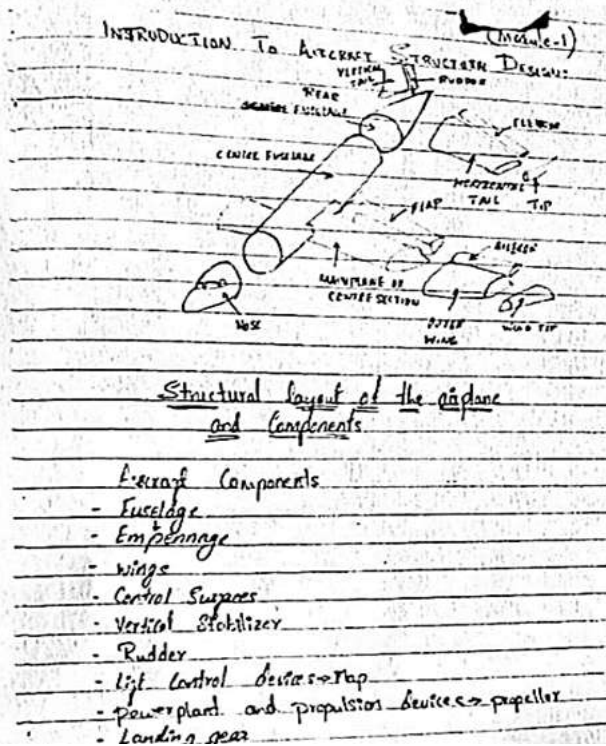 (Module-1)
INTRODUCTION TO AIRCRAFT STRUCTURE DESIGN:
VERTICAL TAIL
RUDDER
REAR
FUSELAGE
CENTRE FUSELAGE
HORIZONTAL TAIL
TIP
FLAP
AILERON
MAINPLANE OR CENTRE SECTION
OUTER WING
WING TIP
NOSE
Structural layout of the airplane
and Components
Aircraft Components
- Fuselage
- Empennage
- wings
- Control Surfaces
- Vertical Stabilizer
- Rudder
- Lift Control devices→flap
- powerplant and propulsion devices→propeller
- Landing gear